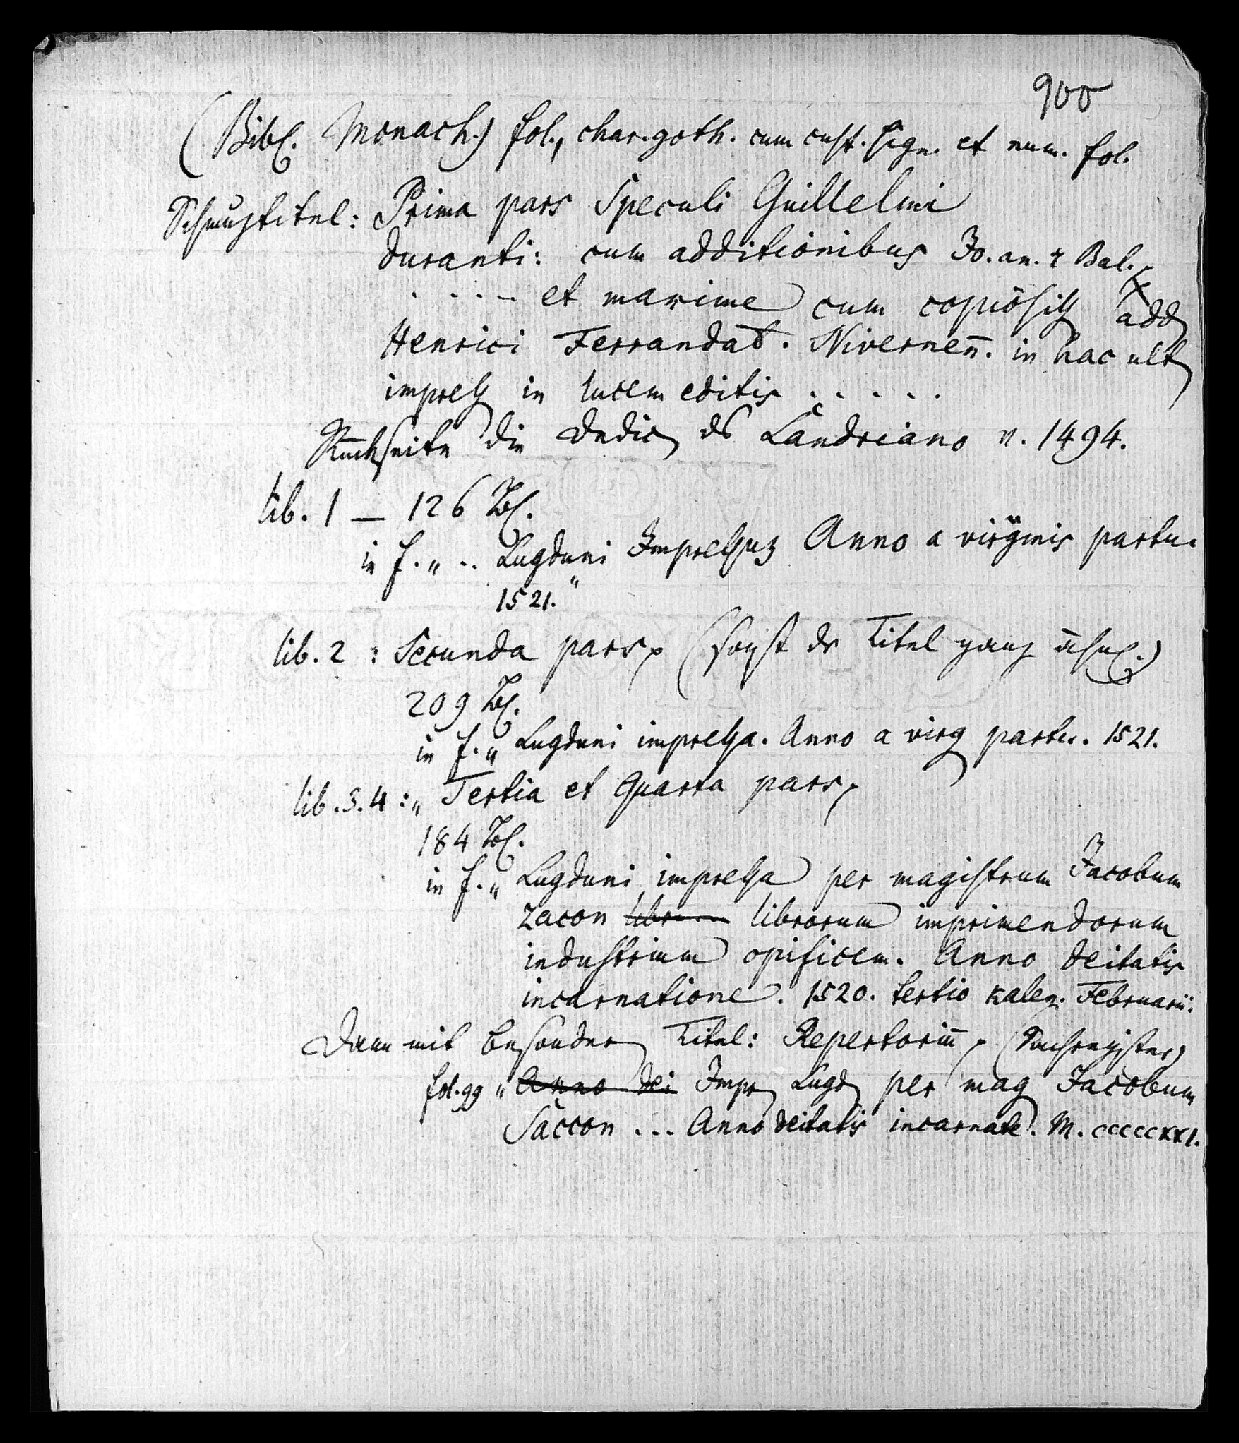 900
(Bibl. Monach.) fol., char. goth. cum cust. sign. et num. fol.
Schmuztitel: Prima pars Speculi Guillelmi
duranti: cum additionibus Jo. an. & Bal.
. . . . et maxime cum copiosis add
Henrici Ferrandat. Nivernen̄. in hac ult
impress in lucem editis . . . . .
Rückseite die Dedic de Landriano v. 1494.
lib. 1 — 126 Bl.
in f. „ .. Lugduni Impressuz Anno a virginis partu.
1521."
lib. 2 : Secunda pars (sonst der Titel ganz ähnl.)
209 Bl.
in f. „ Lugduni impressa. Anno a virg partu. 1521.
lib. 3. 4 : „ Tertia et Quarta pars
184 Bl.
in f. „ Lugduni impressa per magistrum Jacobum
zacon librorum imprimendorum
industrium opificem. Anno deitatis
incarnatione. 1520. tertio kalen. Februarii.
Dann mit besonderm Titel: Repertoriū (Sachregister)
fol. 99 „ Anno dei Impr Lugd per mag Jacobum
Saccon ... Anno deitatis incarnate. M. cccccxxi.